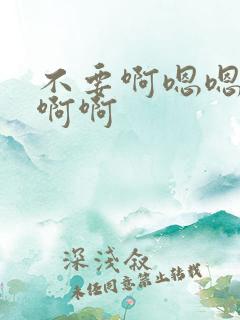 不要啊嗯嗯
啊啊
深淺叙
未任同意第止转载